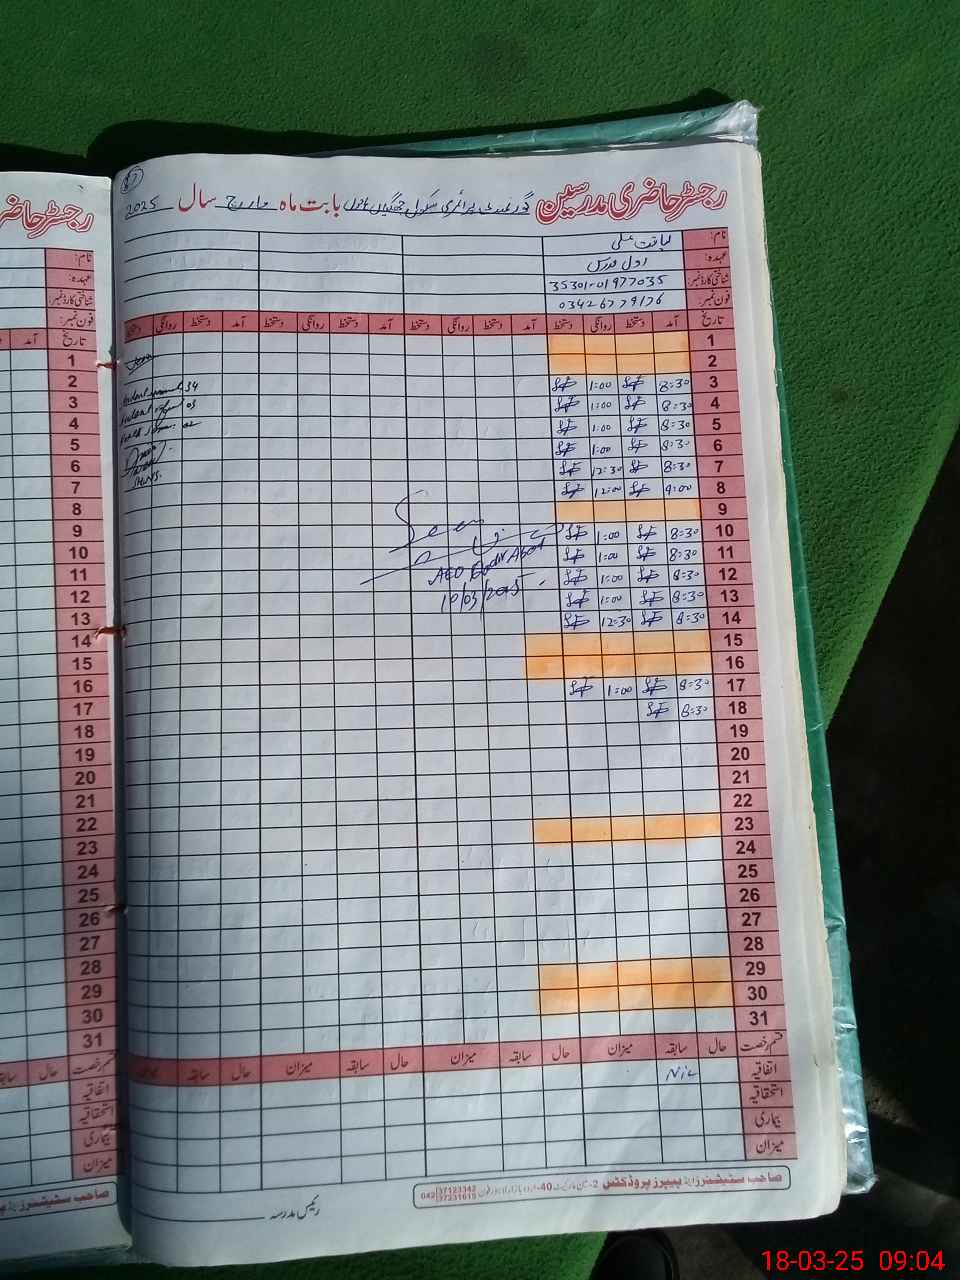 رجسٹر حاضری مدرسین گورنمنٹ پرائمری سکول جھگیاں بابت ماہ مارچ سال 2025
نام: لیاقت علی
عہدہ: اول مدرس
شناختی کارڈ نمبر: 35301-01977035
فون نمبر: 03426779176
تاریخ آمد دستخط روانگی دستخط آمد دستخط روانگی دستخط آمد دستخط روانگی دستخط آمد دستخط روانگی دستخط
1
2
3 8=30 1:00
4 8=30 1:00
5 8=30 1:00
6 8=30 1:00
7 8=30 12:30
8 9=00 12:00
9
10 8=30 1:00
11 8=30 1:00
12 8=30 1:00
13 8=30 1:00
14 8=30 12=30
15
16
17 8=30 1:00
18 8=30
19
20
21
22
23
24
25
26
27
28
29
30
31
Seen
AEO
10/03/2025
34
03
02
قسم رخصت حال سابقہ میزان حال سابقہ میزان حال سابقہ میزان حال سابقہ
اتفاقیہ Nil
استحقاقیہ
بیماری
میزان
صاحب سٹیشنرز اینڈ پیپرز پروڈکٹس
042 37123342
37231615
رئیس مدرسہ
رجسٹر حاضر
نام:
عہدہ:
شناختی کارڈ نمبر:
فون نمبر:
تاریخ آمد د
1
2
3
4
5
6
7
8
9
10
11
12
13
14
15
16
17
18
19
20
21
22
23
24
25
26
27
28
29
30
31
قسم رخصت حال سابقہ
اتفاقیہ
استحقاقیہ
بیماری
میزان
صاحب سٹیشنرز اینڈ
18-03-25 09:04